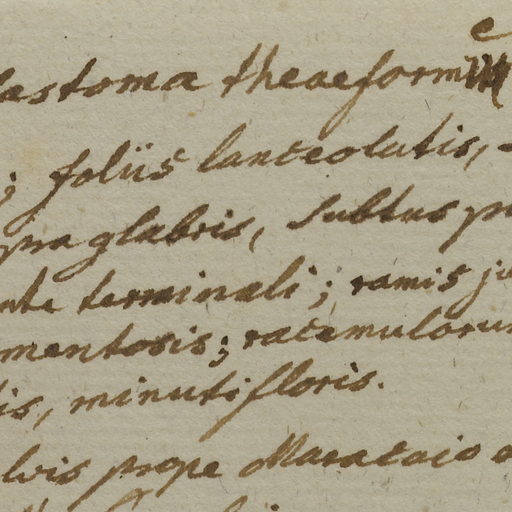 lastoma theaeforme
foliis lanceolatis,
pra glabris, subtus p
nte terminali; ramis ju
mentosis; racemulorum
is, minutifloris.
lvis prope Maracaio